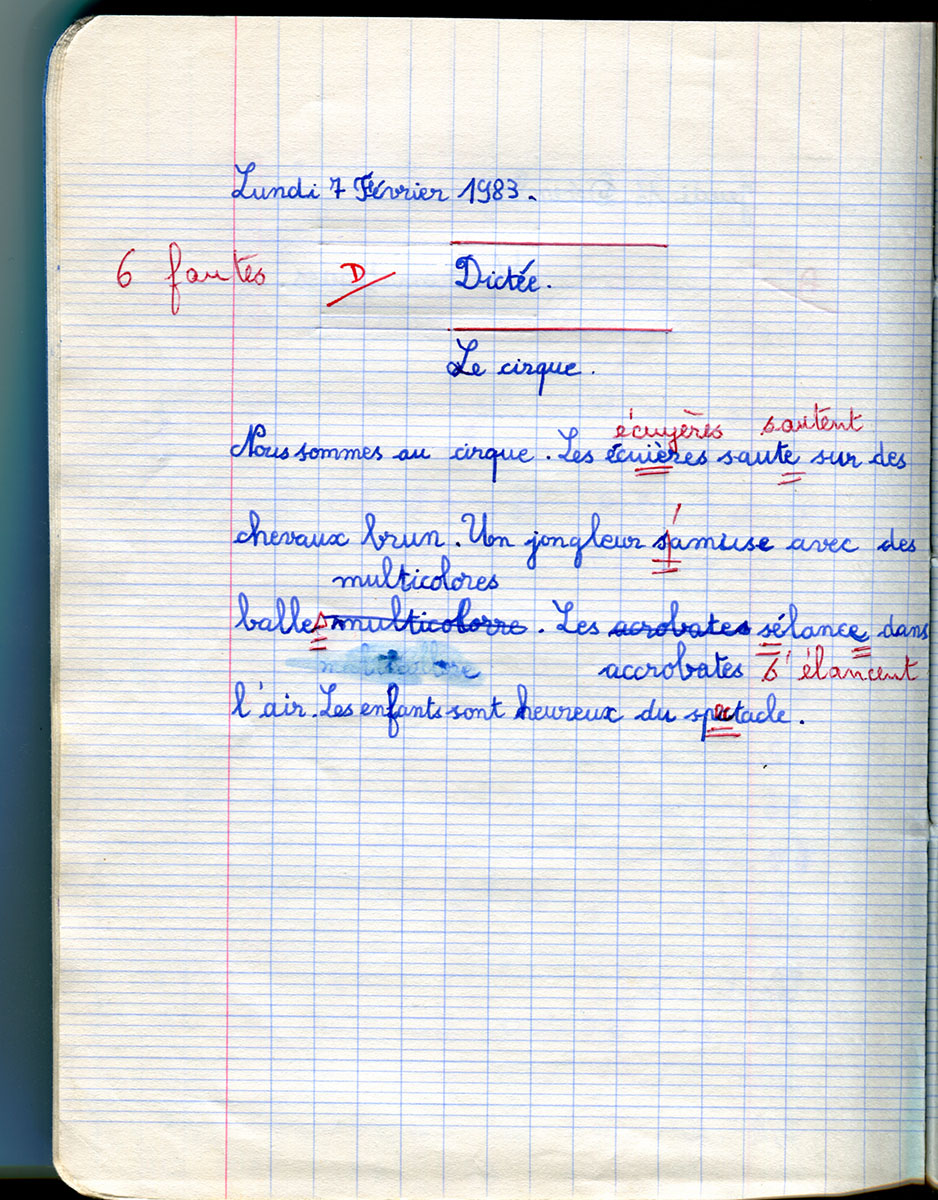 Lundi 7 Février 1983.
6 fautes D Dictée.
Le cirque.
écuyères sautent
Nous sommes au cirque. Les écuières saute sur des
chevaux brun. Un jongleur s'amuse avec des
multicolores
balles multicolorre. Les acrobates sélance dans
accrobates s'élancent
l'air. Les enfants sont heureux du spectacle.